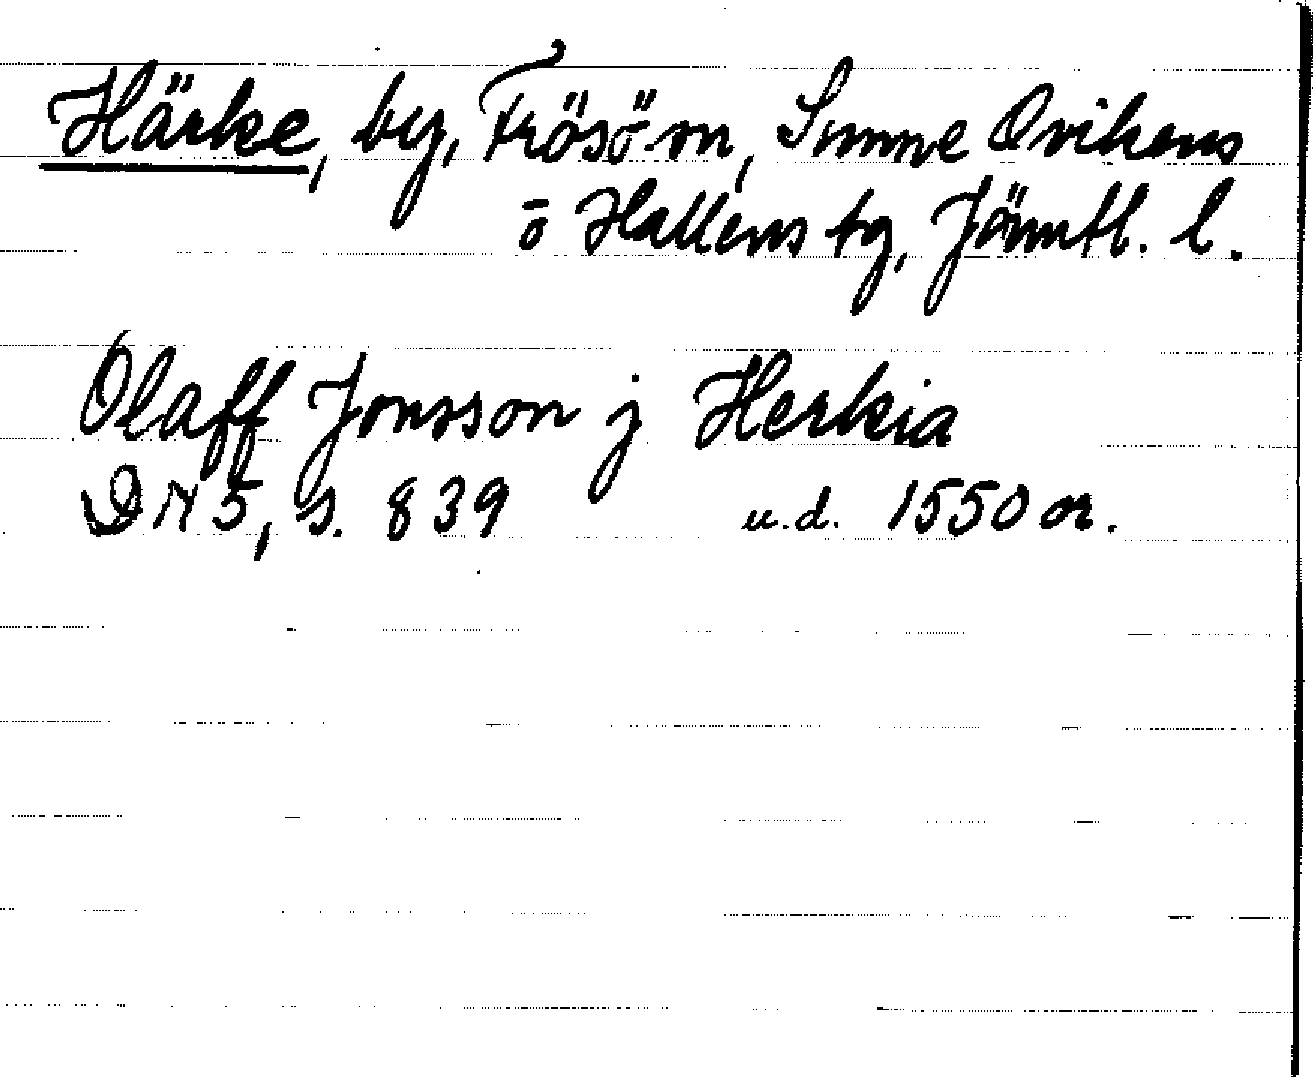 Härke, by, Frösön, Sunne Ovikens
o Hallens tg, Jämtl. l.
Olaff Jonsson j Herkia
DN 5, s. 839 u.d. 1550 or.